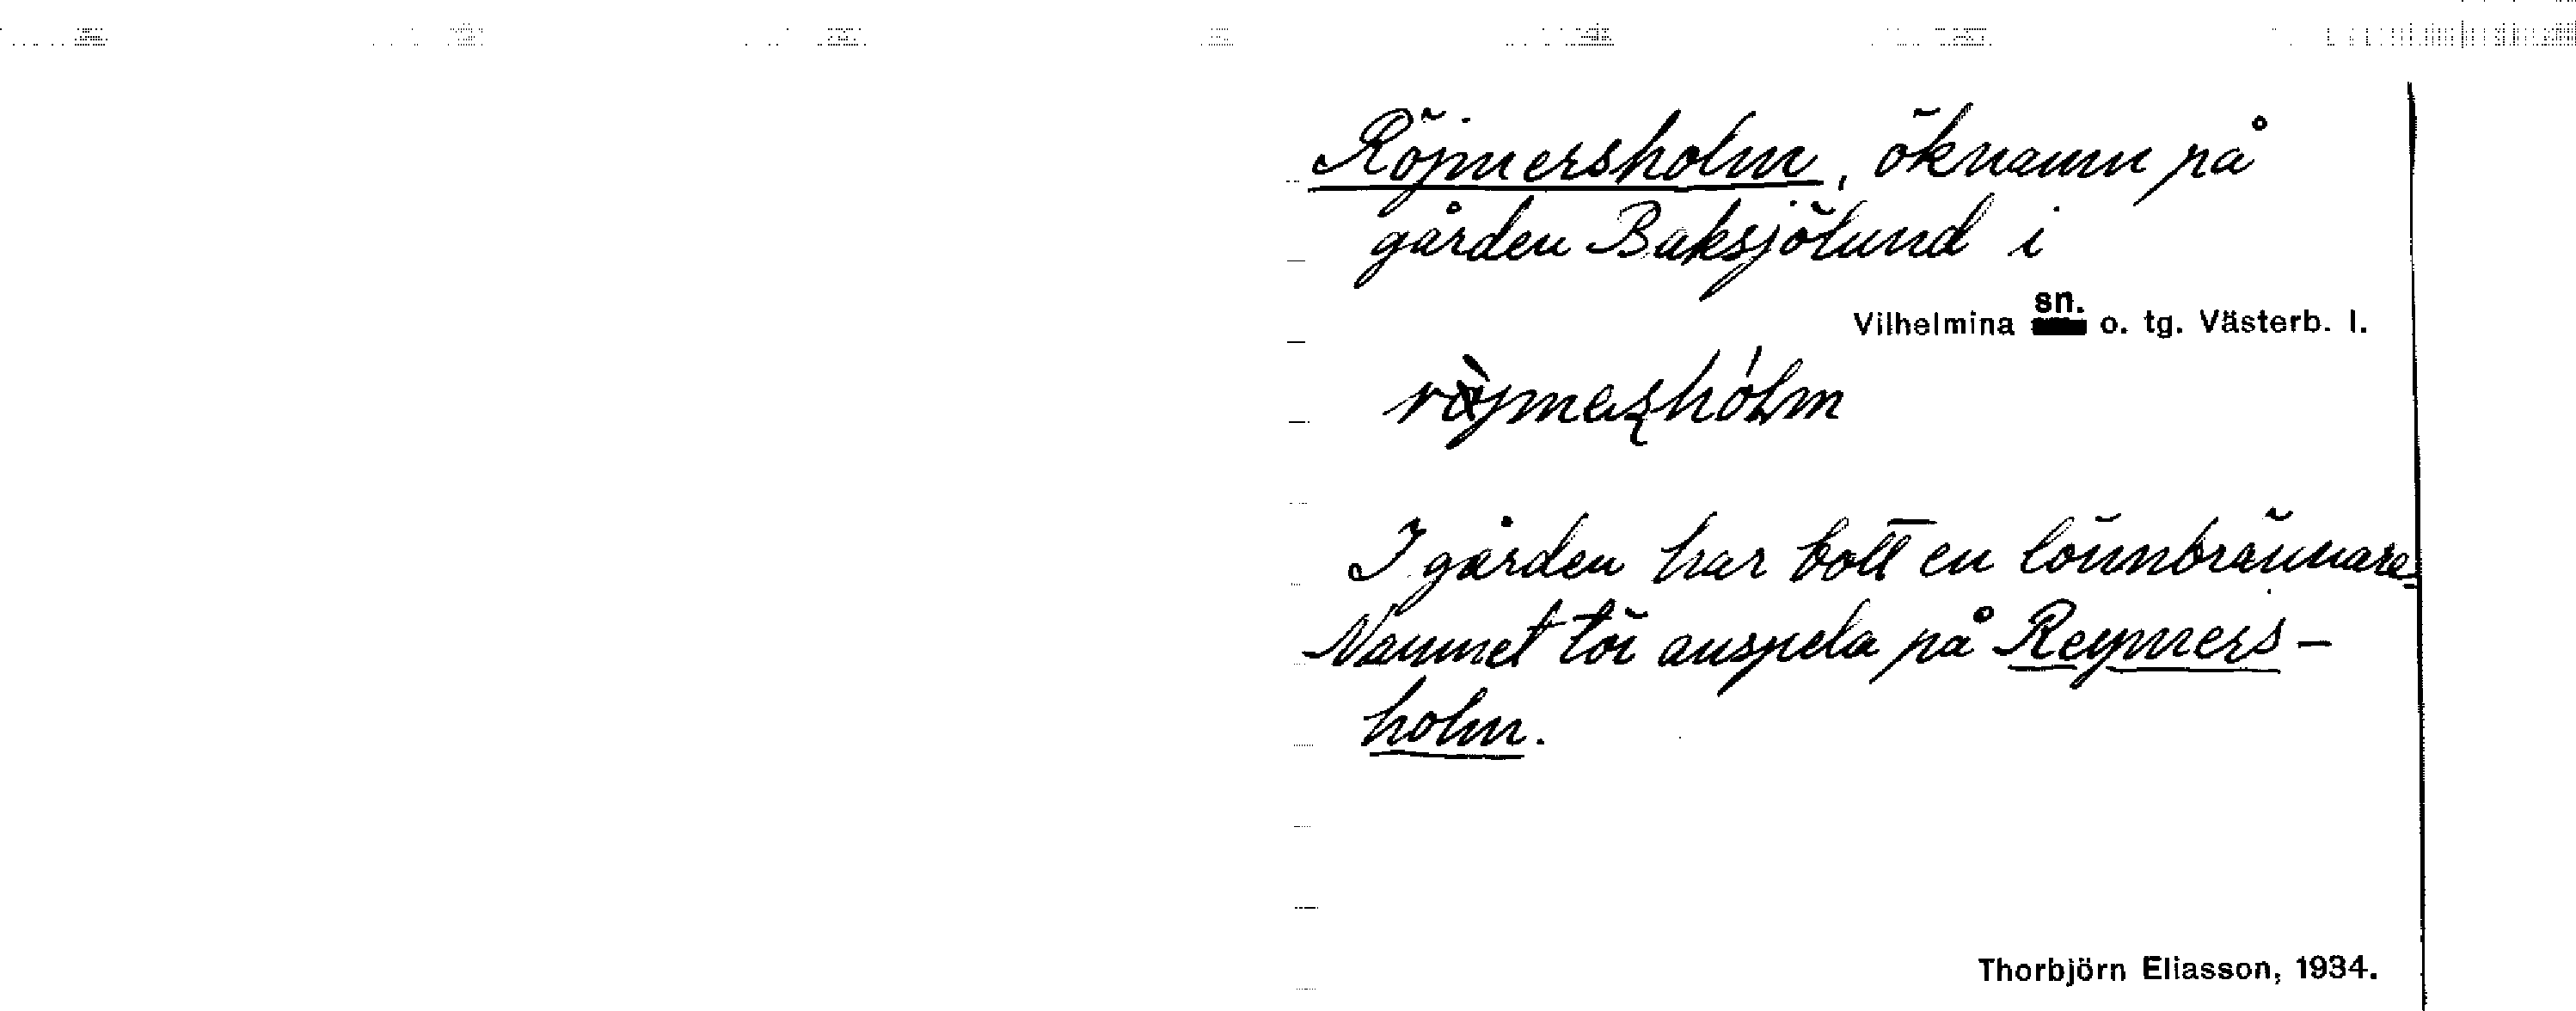 Röjmersholm, öknamn på
gården Baksjölund i
Vilhelmina sn. o. tg. Västerb. l.
I gården har bott en lönnbrännare.
Namnet tör anspela på Reymers-
holm.
Thorbjörn Eliasson, 1934.